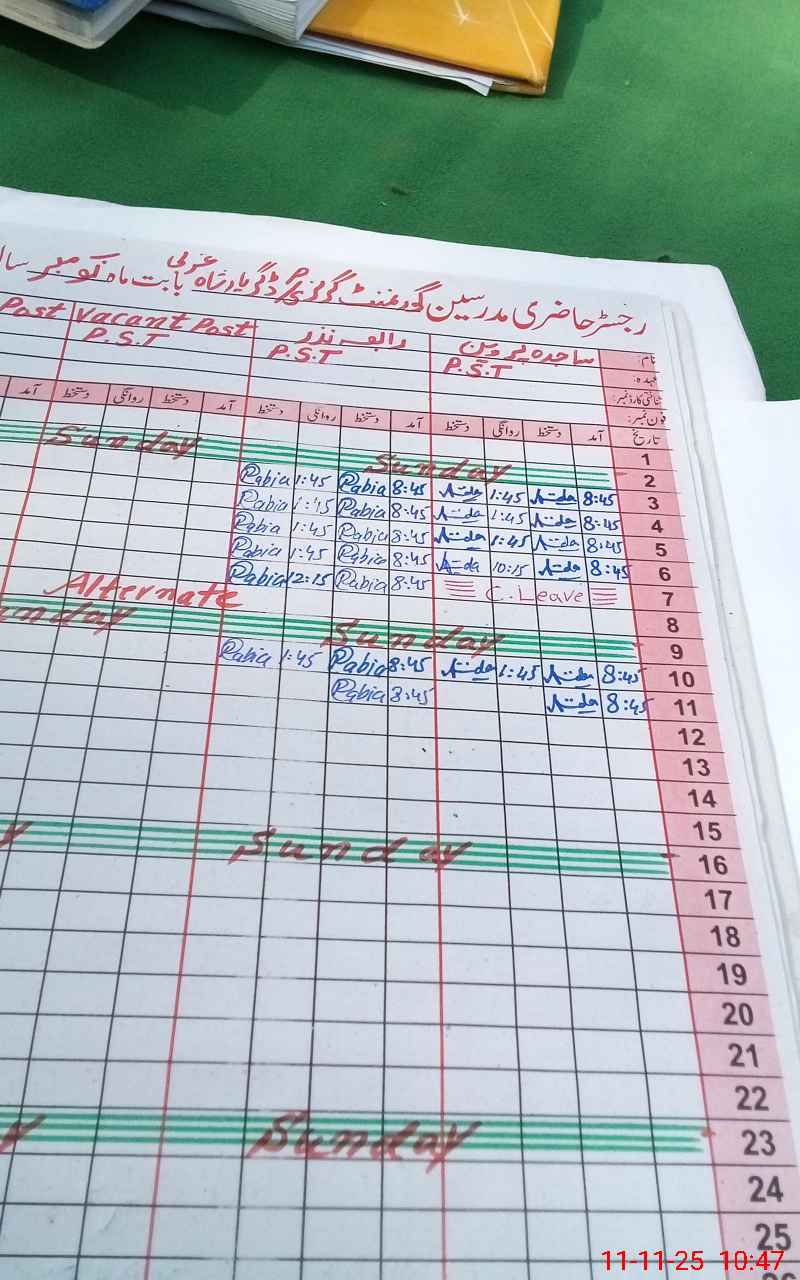 رجسٹر حاضری مدرسین گورنمنٹ گرلز P/S ڈگر یارشاہ غربی بابت ماہ نومبر سال
نام: ساجدہ پروین رابعہ نذر Vacant Post Post
عہدہ: P.S.T P.S.T P.S.T
شناختی کارڈ نمبر:
فون نمبر:
تاریخ آمد دستخط روانگی دستخط آمد دستخط روانگی دستخط آمد دستخط روانگی دستخط آمد
1
2 Sunday Sunday
3 8:45 1:45 8:45 Rabia 1:45 Rabia
4 8:45 1:45 8:45 Rabia 1:45 Rabia
5 8:45 1:45 8:45 Rabia 1:45 Rabia
6 8:45 10:15 8:45 Rabia 1:45 Rabia
7 C.Leave 8:45 Rabia 12:15 Rabia
8 Alternate
9 Sunday unday
10 8:45 1:45 8:45 Rabia 1:45 Rabia
11 8:45 8:45 Rabia
12
13
14
15
16 Sunday y
17
18
19
20
21
22
23 Sunday y
24
25
11-11-25 10:47